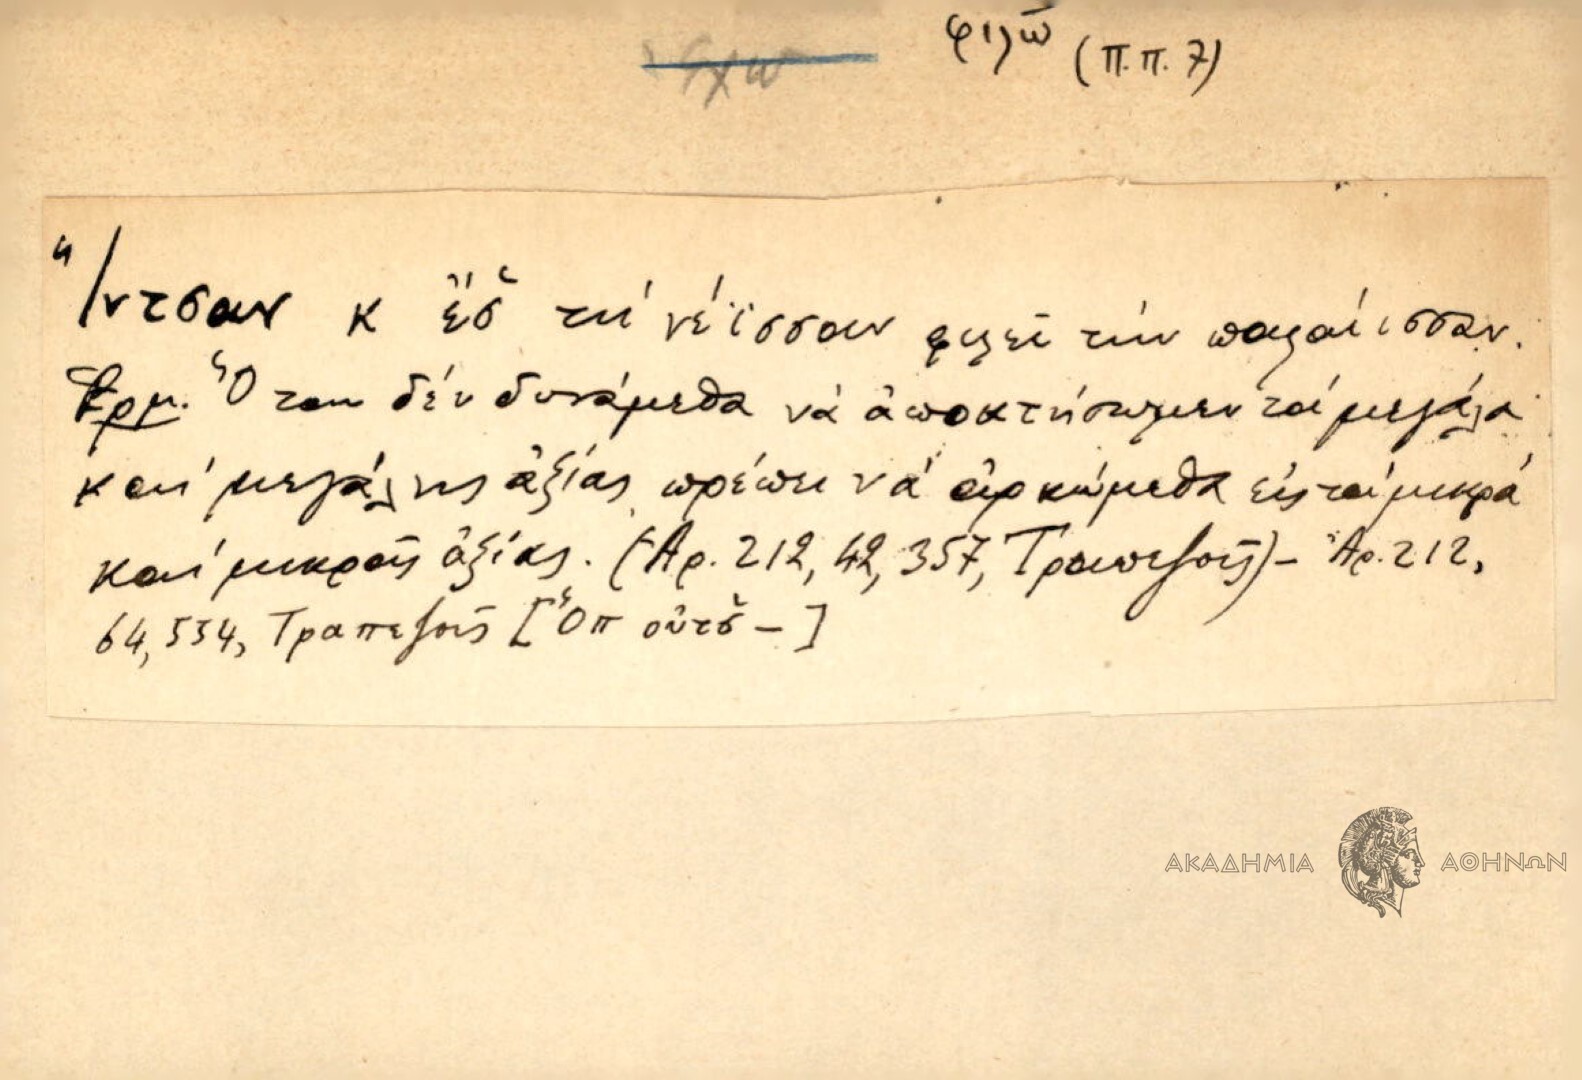 ἔχω φιλῶ (Π.Π. 7)
Ἴντσαν κ̓ ἔ̈σ̌ τὴ νέϊσσαν φιλεῖ τὴν παλαίισσαν.
Ἑρμ. Ὅταν δὲν δυνάμεθα νὰ ἀποκτήσωμεν τὰ μεγάλα
καὶ μεγάλης ἀξίας πρέπει νὰ ἀρκώμεθα εἰς τὰ μικρὰ
καὶ μικρᾶς ἀξίας. (Ἀρ. 212, 42, 357, Τραπεζοῦς) - Ἀρ. 212,
64, 534, Τραπεζοῦς [Ὅπ οὔτσ̌ - ]
ΑΚΑΔΗΜΙΑ ΑΘΗΝΩΝ